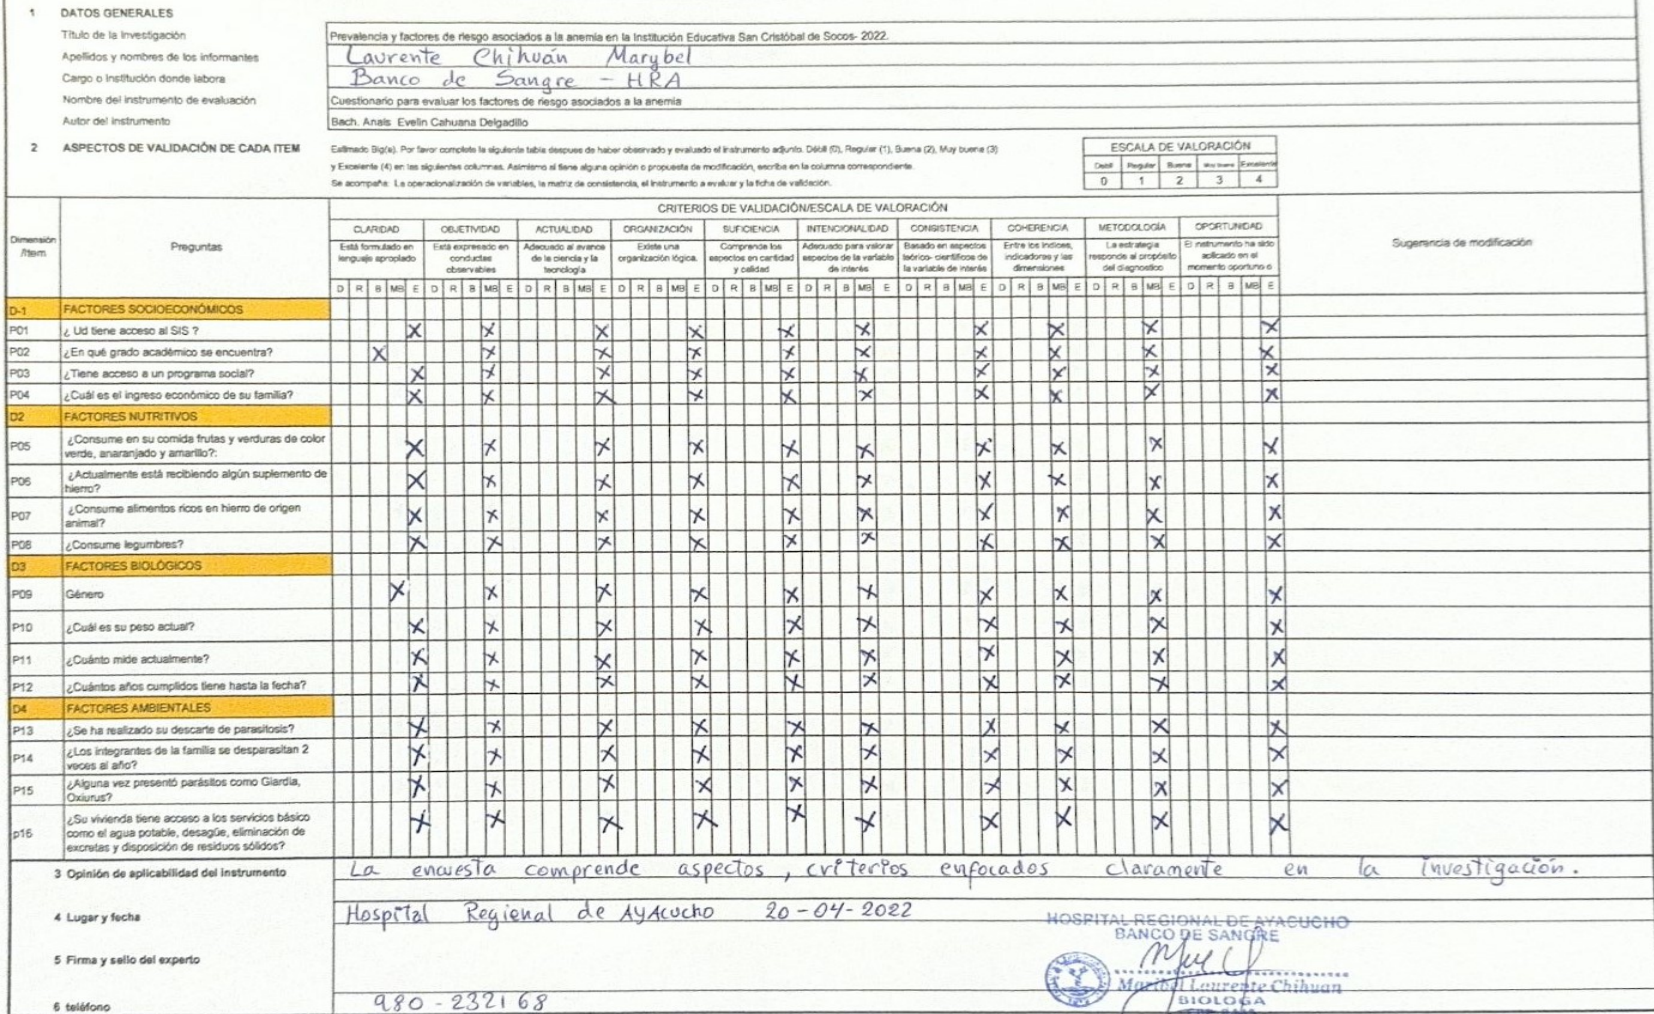 1 DATOS GENERALES
Título de la Investigación Prevalencia y factores de riesgo asociados a la anemia en la Institución Educativa San Cristóbal de Socos- 2022.
Apellidos y nombres de los informantes Laurente Chihuán Marybel
Cargo o Institución donde labora Banco de Sangre - HRA
Nombre del instrumento de evaluación Cuestionario para evaluar los factores de riesgo asociados a la anemia
Autor del instrumento Bach. Anais Evelin Cahuana Delgadillo
2 ASPECTOS DE VALIDACIÓN DE CADA ITEM Estimado Blg(a). Por favor complete la siguiente tabla despues de haber observado y evaluado el instrumento adjunto. Débil (0), Regular (1), Buena (2), Muy buena (3)
y Excelente (4) en las siguientes columnas. Asimismo si tiene alguna opinión o propuesta de modificación, escriba en la columna correspondiente.
Se acompaña: La operacionalización de variables, la matriz de consistencia, el instrumento a evaluar y la ficha de validación.
ESCALA DE VALORACIÓN
Debil Regular Buena Muy buena Excelente
0 1 2 3 4
CRITERIOS DE VALIDACIÓN/ESCALA DE VALORACIÓN
Dimensión /Item Preguntas Sugerencia de modificación
CLARIDAD OBJETIVIDAD ACTUALIDAD ORGANIZACIÓN SUFICIENCIA INTENCIONALIDAD CONSISTENCIA COHERENCIA METODOLOGÍA OPORTUNIDAD
Está formulado en lenguaje apropiado
Está expresado en conductas observables
Adecuado al avance de la ciencia y la tecnología
Existe una organización lógica.
Comprende los aspectos en cantidad y calidad
Adecuado para valorar aspectos de la variable de interés
Basado en aspectos teórico- científicos de la variable de interés
Entre los índices, indicadores y las dimensiones
La estrategia responde al propósito del diagnostico
El instrumento ha sido aplicado en el momento oportuno o
D R B MB E D R B MB E D R B MB E D R B MB E D R B MB E D R B MB E D R B MB E D R B MB E D R B MB E D R B MB E
D-1 FACTORES SOCIOECONÓMICOS
P01 ¿ Ud tiene acceso al SIS ? X X X X X X X X X X
P02 ¿En qué grado académico se encuentra? X X X X X X X X X X
P03 ¿Tiene acceso a un programa social? X X X X X X X X X X
P04 ¿Cuál es el ingreso económico de su familia? X X X X X X X X X X
D2 FACTORES NUTRITIVOS
P05 ¿Consume en su comida frutas y verduras de color verde, anaranjado y amarillo?: X X X X X X X X X X
P06 ¿Actualmente está recibiendo algún suplemento de hierro? X X X X X X X X X X
P07 ¿Consume alimentos ricos en hierro de origen animal? X X X X X X X X X X
P08 ¿Consume legumbres? X X X X X X X X X X
D3 FACTORES BIOLÓGICOS
P09 Género X X X X X X X X X X
P10 ¿Cuál es su peso actual? X X X X X X X X X X
P11 ¿Cuánto mide actualmente? X X X X X X X X X X
P12 ¿Cuántos años cumplidos tiene hasta la fecha? X X X X X X X X X X
D4 FACTORES AMBIENTALES
P13 ¿Se ha realizado su descarte de parasitosis? X X X X X X X X X X
P14 ¿Los integrantes de la familia se desparasitan 2 veces al año? X X X X X X X X X X
P15 ¿Alguna vez presentó parásitos como Giardia, Oxiurus? X X X X X X X X X X
p16 ¿Su vivienda tiene acceso a los servicios básico como el agua potable, desagüe, eliminación de excretas y disposición de residuos sólidos? X X X X X X X X X X
3 Opinión de aplicabilidad del instrumento La encuesta comprende aspectos, criterios enfocados claramente en la investigación.
4 Lugar y fecha Hospital Regional de Ayacucho 20-04-2022
HOSPITAL REGIONAL DE AYACUCHO
BANCO DE SANGRE
5 Firma y sello del experto
Maribel Laurente Chihuan
BIOLOGA
6 teléfono 980-232168